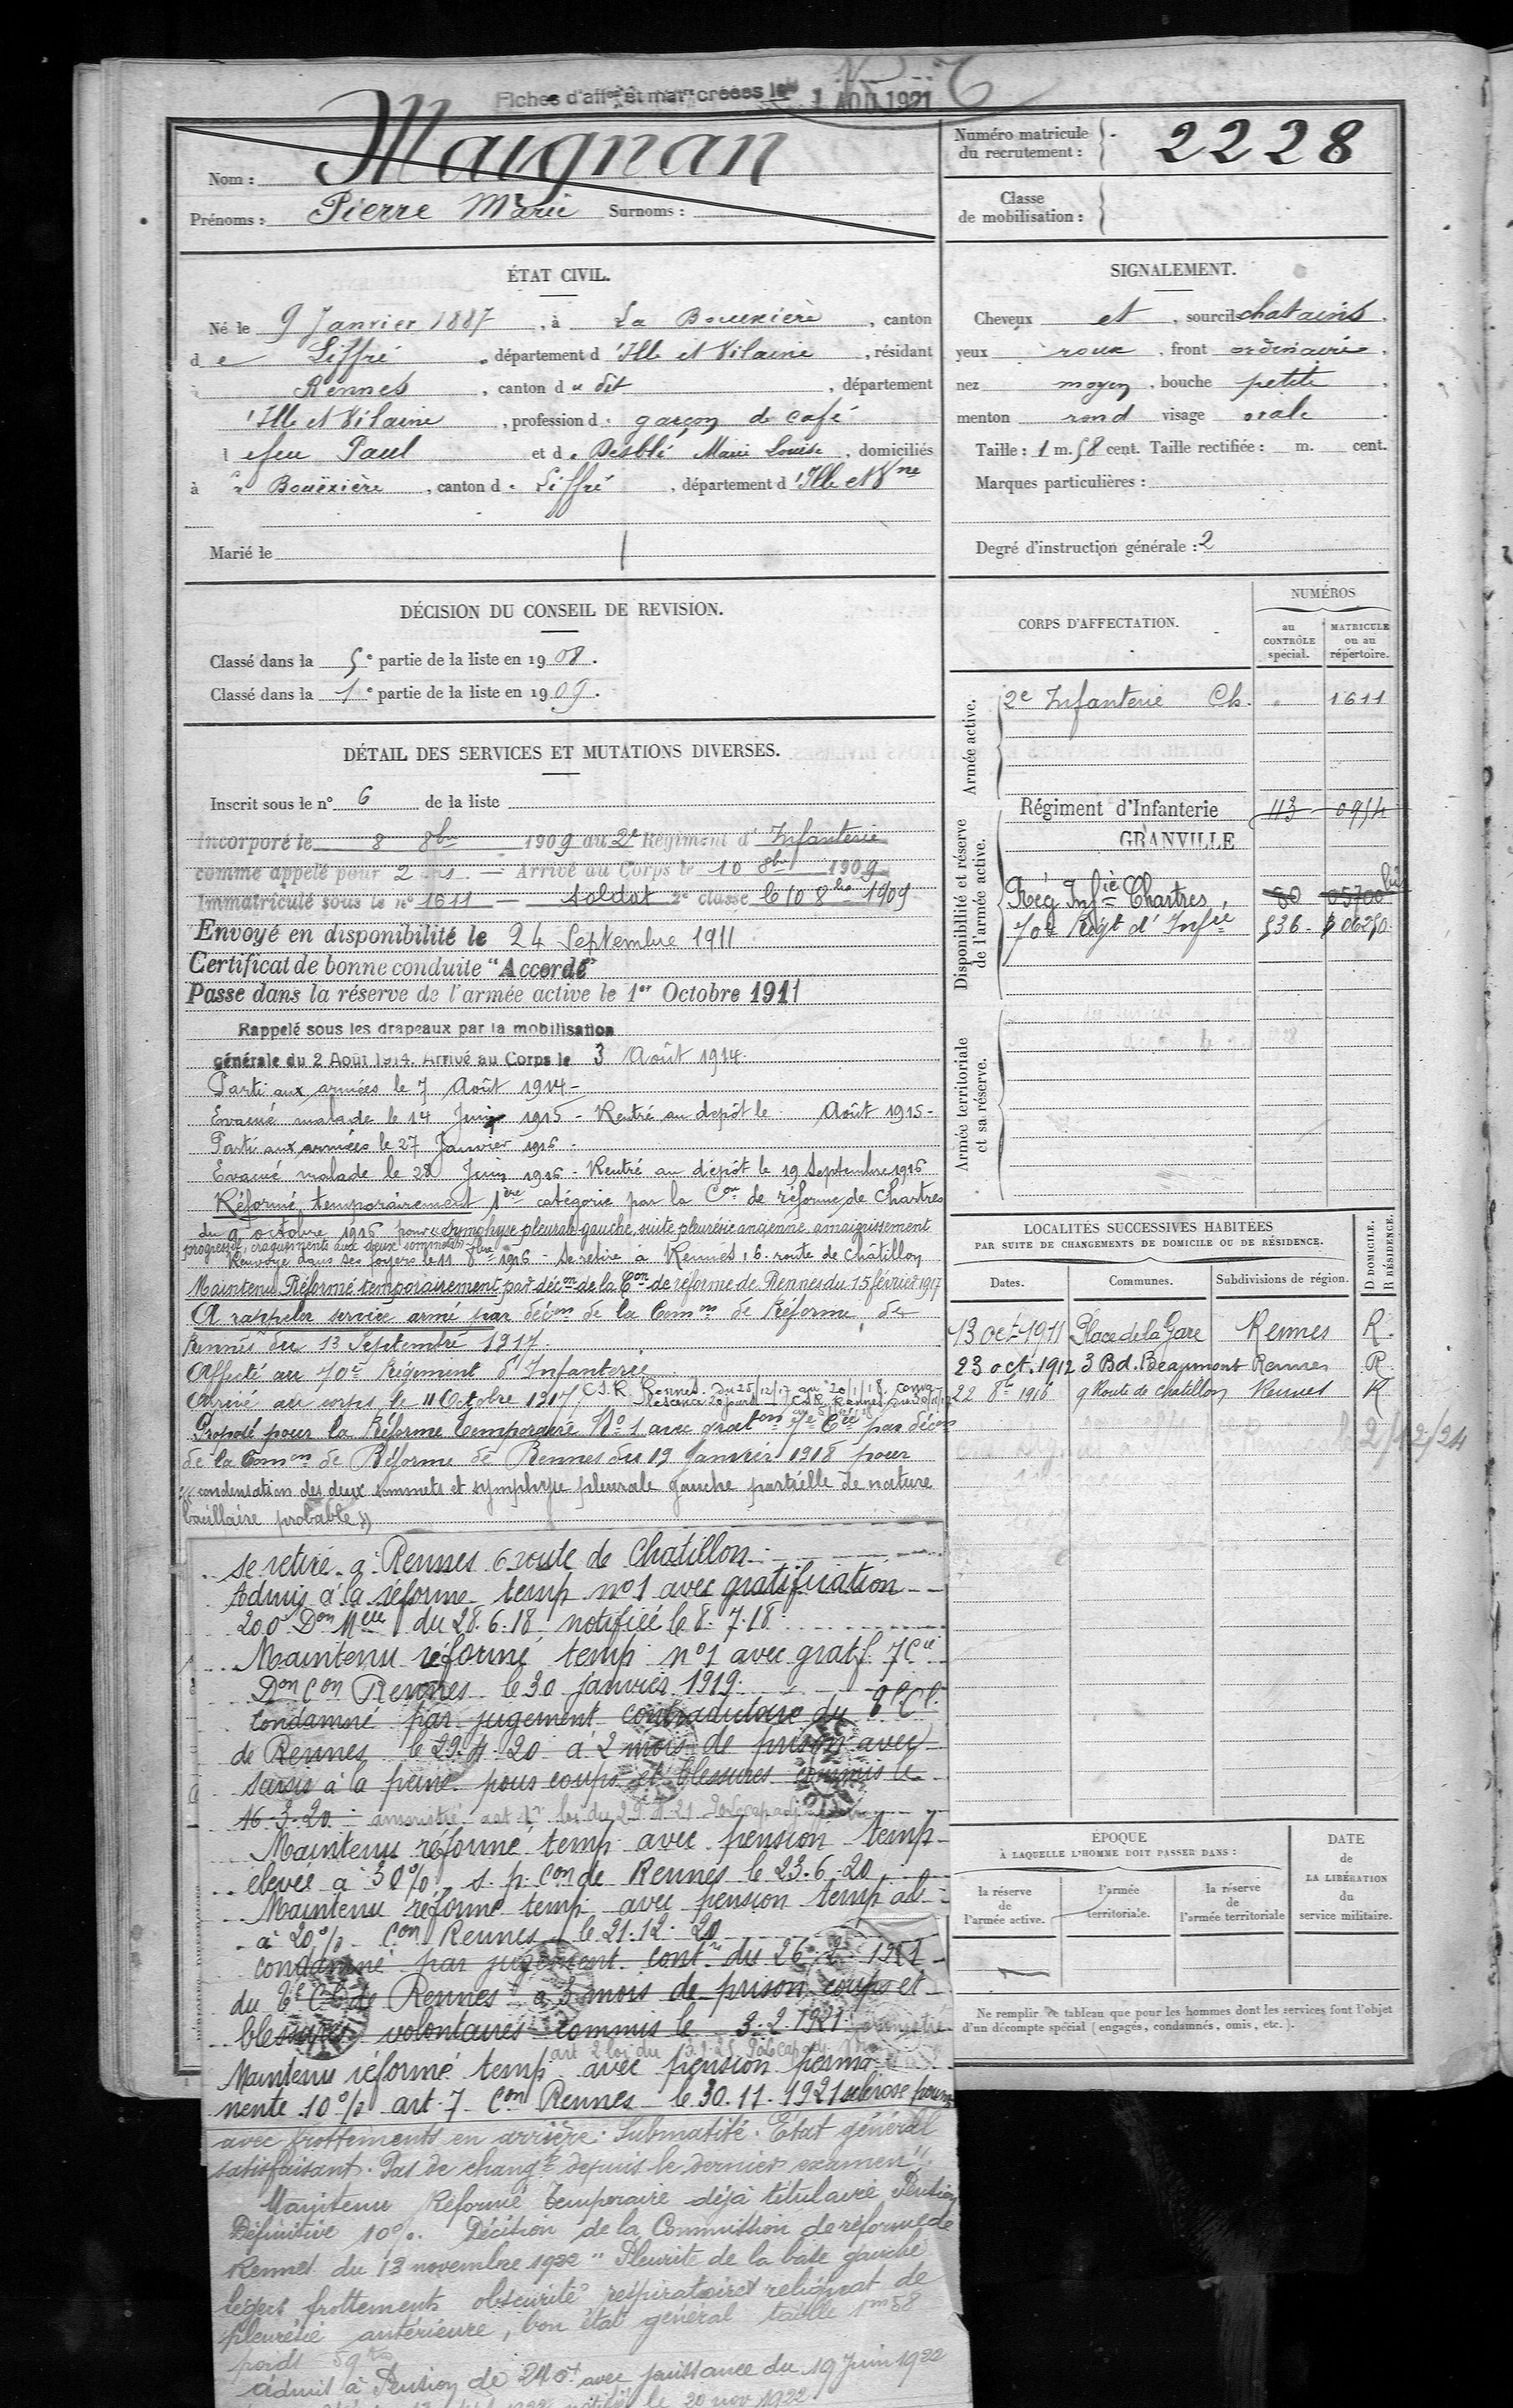 Fiches d'aff. et mat. créées le 1 AOU 1921
Nom : Maignan
Prénoms : Pierre Marie Surnoms :
Numéro matricule
du recrutement : 2228
Classe
de mobilisation :
ÉTAT CIVIL.
Né le 9 Janvier 1887, à La Bouexière, canton
de Liffré, département d'Ille et Vilaine, résidant
Rennes, canton du dit, département
d'Ille et Vilaine, profession de garçon de café
fils de feu Paul et de Desblé Marie Louise, domiciliés
à La Bouëxière, canton de Liffré, département d'Ille et Vne
Marié le
SIGNALEMENT.
Cheveux et, sourcils chatains.
yeux roux, front ordinaire,
nez moyen, bouche petite,
menton rond visage ovale.
Taille : 1 m. 58 cent. Taille rectifiée : m. cent.
Marques particulières :
Degré d'instruction générale : 2
DÉCISION DU CONSEIL DE REVISION.
Classé dans la 5e partie de la liste en 1908.
Classé dans la 1e partie de la liste en 1909.
DÉTAIL DES SERVICES ET MUTATIONS DIVERSES.
Inscrit sous le n° 6 de la liste
Incorporé le 8 8bre 1909 au 2e Régiment d'Infanterie
comme appelé pour 2 ans — Arrivé au Corps le 10 8bre 1909
Immatriculé sous le n° 1611 — soldat 2e classe le 10 8bre 1909
Envoyé en disponibilité le 24 Septembre 1911
Certificat de bonne conduite "Accordé"
Passé dans la réserve de l'armée active le 1er Octobre 1911
Rappelé sous les drapeaux par la mobilisation
générale du 2 Août 1914. Arrivé au Corps le 3 Août 1914.
Parti aux armées le 7 Août 1914 -
Evacué malade le 14 Juin 1915 - Rentré au dépôt le Août 1915 -
Parti aux armées le 27 Janvier 1916 -
Evacué malade le 28 Juin 1916 - Rentré au dépôt le 19 Septembre 1916
Réformé temporairement 1ère catégorie par la Con de réforme de Chartres
du 9 octobre 1916 pour « symphyse pleurale gauche, suite pleurésie ancienne amaigrissement
progressif, craquements aux deux sommets »
Renvoyé dans ses foyers le 11 8bre 1916 - Se retire à Rennes, 6 route de Châtillon
Maintenu Réformé temporairement par décon de la Con de réforme de Rennes du 15 février 1917
A rappeler service armé par décon de la Comon de Réforme de
Rennes du 13 Septembre 1917.
Affecté au 70e Régiment d'Infanterie
Arrivé au corps le 11 Octobre 1917 C.S.R. Rennes du 25/12/17 au 20/1/18
Proposé pour la Réforme Temporaire N° 1 avec grat on 7e Cie par décon
de la Comon de Réforme de Rennes du 19 Janvier 1918 pour
« condensation des deux sommets et symphyse pleurale gauche partielle de nature
bacillaire probable »
se retire à Rennes 6 route de Chatillon
Admis à la réforme temp n°1 avec gratification
200 Don Mlle du 28.6.18 notifiée le 8.7.18
Maintenu réformé temp n°1 avec gratf. 7 Cie
Don Con Rennes le 30 janvier 1919.
Condamné par jugement contradictoire du
de Rennes le 29.4.20 à 2 mois de prison avec
sursis à la peine pour coups et blessures commis le
16.3.20 - amnistié art 1er loi du 29.4.21
Maintenu réformé temp avec pension temp
élevée à 30% s.p. Con de Rennes le 23.6.20
Maintenu réformé temp avec pension temp ab
à 20% Con Rennes le 21.12.20
condamné par jugement cont. du 26.2.1921
du de Rennes à 3 mois de prison coups et
blessures volontaires commis le 3.2.1921 amnistié
art 2 loi du 3.1.25
Maintenu réformé temp avec pension perma-
nente 10% art. 7 Con Rennes le 30.11.1921
avec frottements en arrière. Submatité. Etat général
satisfaisant. Pas de changt depuis le dernier examen".
Maintenu Réformé Temporaire déjà titulaire Pension
Définitive 10%. Décision de la Commission de réforme de
Rennes du 13 novembre 1922 " Pleurite de la base gauche
légers frottements obscurité respiratoire reliquat de
pleurésie antérieure, bon état général taille 1m58
poids 59 k
Admis à Pension de 240f avec jouissance du 19 Juin 1922
notifiée le 20 nov 1922
CORPS D'AFFECTATION.
NUMÉROS
au
CONTRÔLE
spécial.
MATRICULE
ou au
répertoire.
Armée active.
2e Infanterie Ch. 1611
Disponibilité et réserve
de l'armée active.
Régiment d'Infanterie 113 0954
GRANVILLE
Rég Infie Chartres 80 05700 bis
70e Régt d'Infie 536 06250
Armée territoriale
et sa réserve.
LOCALITÉS SUCCESSIVES HABITÉES
PAR SUITE DE CHANGEMENTS DE DOMICILE OU DE RÉSIDENCE.
Dates. Communes. Subdivisions de région. D DOMICILE. R RÉSIDENCE.
13 oct 1911 Place de la Gare Rennes R.
23 oct. 1912 3 Bd. Beaumont Rennes R
22 8bre 1916 9 Route de Chatillon Rennes R
2/12/24
ÉPOQUE
À LAQUELLE L'HOMME DOIT PASSER DANS :
la réserve
de
l'armée active.
l'armée
territoriale.
la réserve
de
l'armée territoriale
DATE
de
LA LIBÉRATION
du
service militaire.
Ne remplir ce tableau que pour les hommes dont les services font l'objet
d'un décompte spécial (engagés, condamnés, omis, etc.).